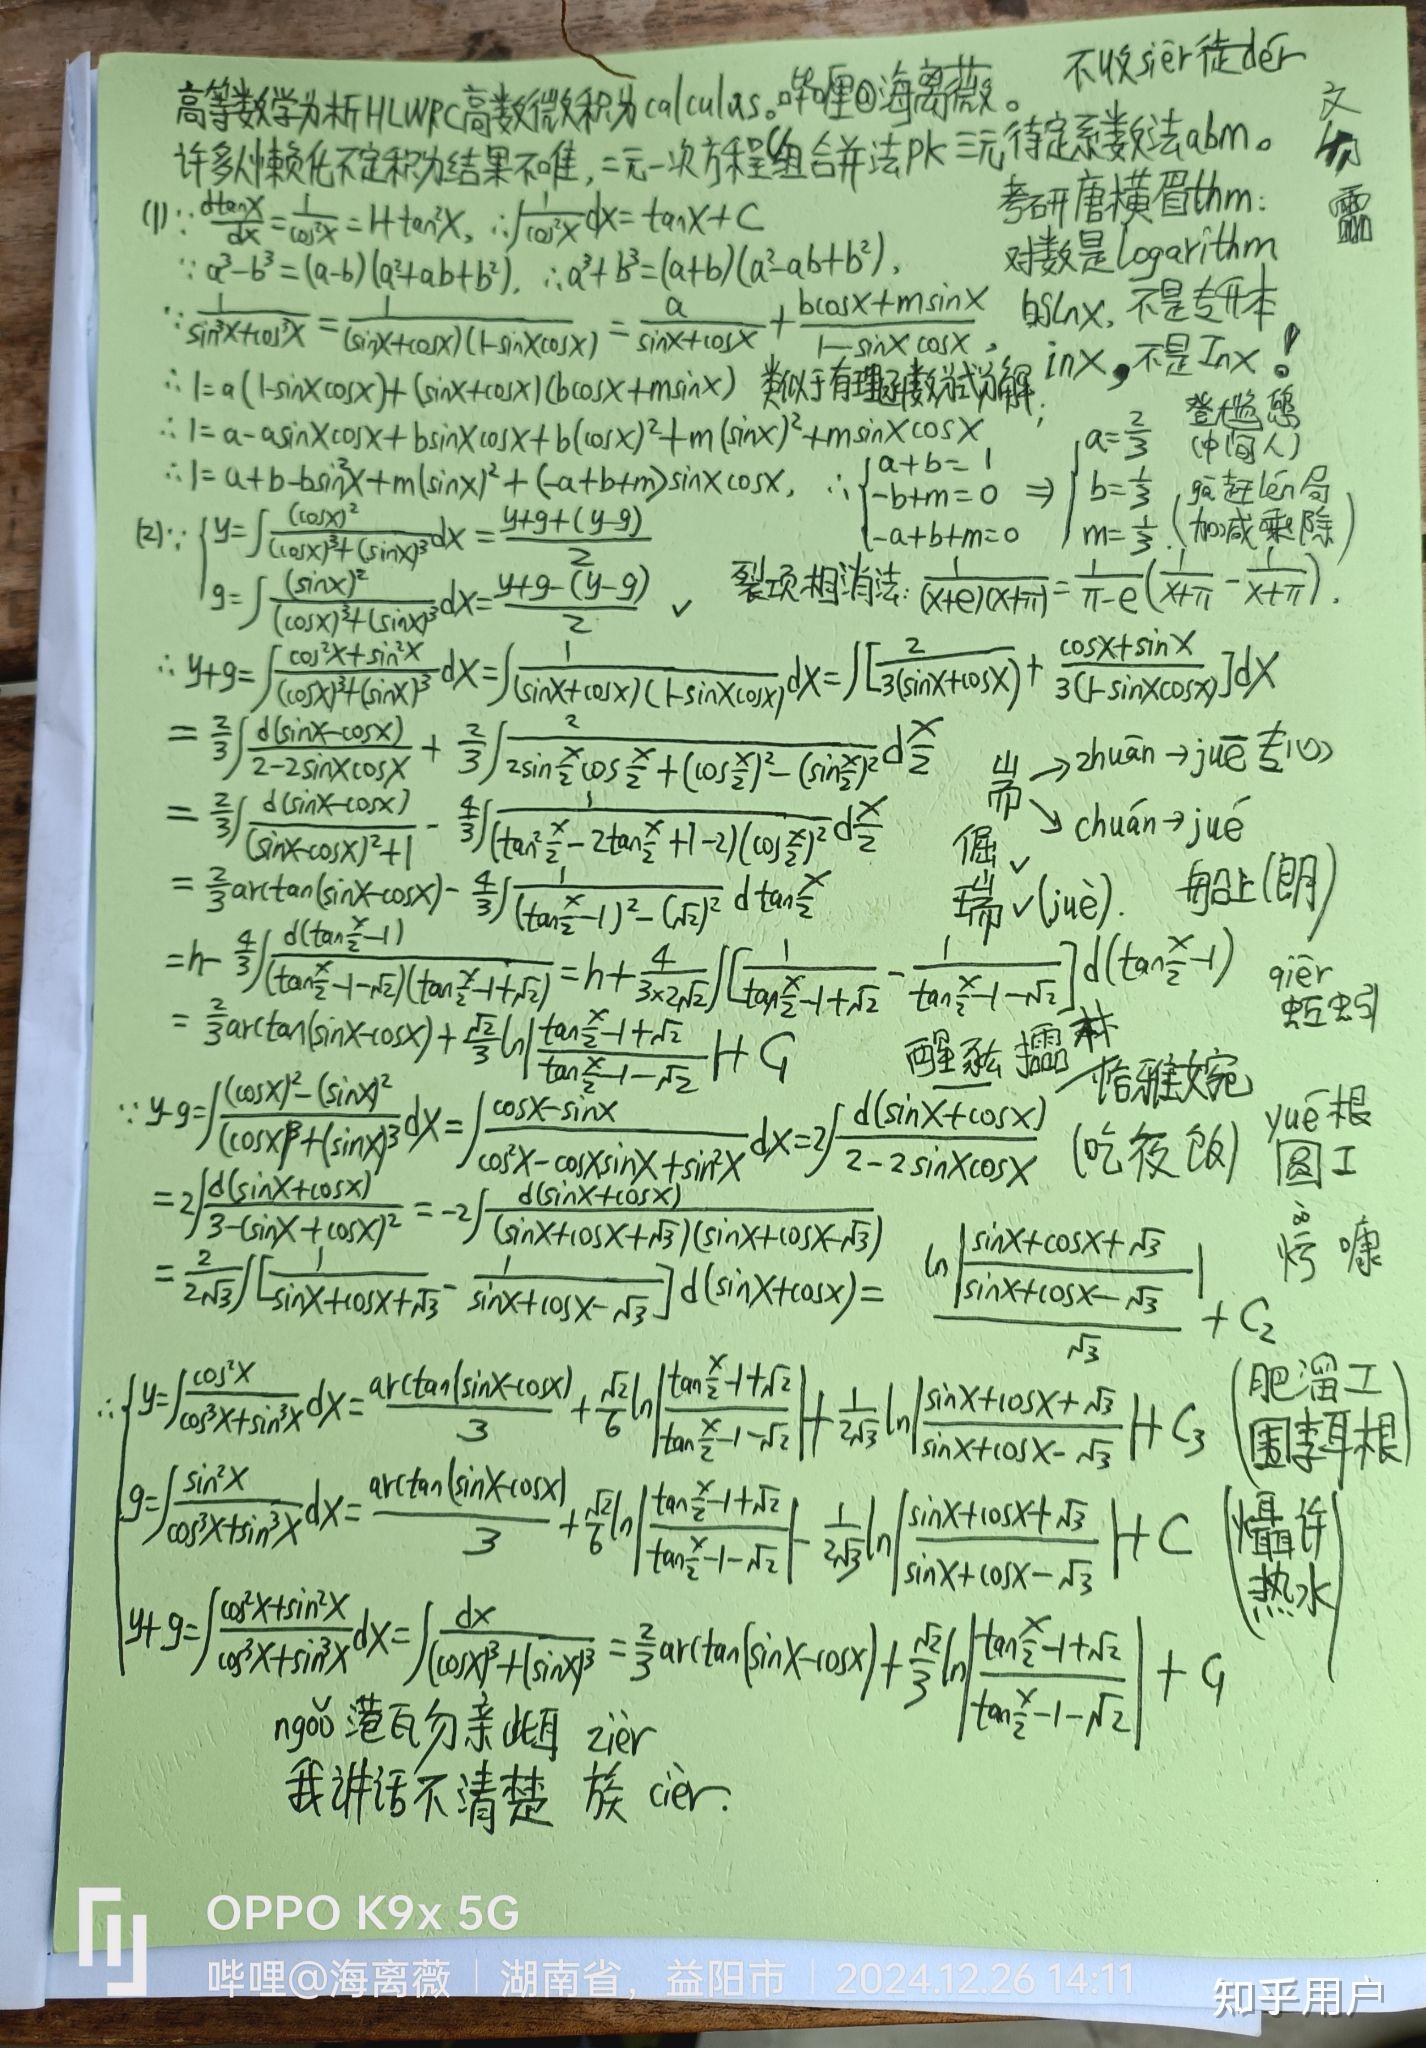 不收sier徒der
高等数学分析HLWRC高数微积分calculus。哔哩@海离薇。
许多人懒化不定积分结果不唯,二元一次方程组合并法PK三元待定系数法abm。
(1)∵dtanx/dx=1/cos²x=1+tan²x,∴∫1/cos²x dx=tanx+C
考研唐横眉thm:
∵a³-b³=(a-b)(a²+ab+b²),∴a³+b³=(a+b)(a²-ab+b²),
对数是logarithm
∵1/(sin³x+cos³x)=1/((sinx+cosx)(1-sinxcosx))=a/(sinx+cosx)+(bcosx+msinx)/(1-sinxcosx),
的lnx,不是专升本
inx,不是Inx!
∴1=a(1-sinxcosx)+(sinx+cosx)(bcosx+msinx) 类似于有理函数分式分解;
∴1=a-asinxcosx+bsinxcosx+b(cosx)²+m(sinx)²+msinxcosx
(中间人)
∴1=a+b-bsin²x+m(sinx)²+(-a+b+m)sinxcosx,∴{a+b=1 -b+m=0 -a+b+m=0 ⇒ {a=2/3 b=1/3 m=1/3.
gā赶lén局
(加减乘除)
(2)∵{y=∫(cosx)²/((cosx)³+(sinx)³)dx=(y+g+(y-g))/2
g=∫(sinx)²/((cosx)³+(sinx)³)dx=(y+g-(y-g))/2 ✓
裂项相消法:1/((x+e)(x+π))=1/(π-e)(1/(x+π)-1/(x+π)).
∴y+g=∫(cos²x+sin²x)/((cosx)³+(sinx)³)dx=∫1/((sinx+cosx)(1-sinxcosx))dx=∫[2/(3(sinx+cosx))+(cosx+sinx)/(3(1-sinxcosx))]dx
=2/3∫d(sinx-cosx)/(2-2sinxcosx)+2/3∫2/(2sin x/2 cos x/2+(cos x/2)²-(sin x/2)²)d x/2
→zhuān→juē专心
=2/3∫d(sinx-cosx)/((sinx-cosx)²+1)-4/3∫1/((tan² x/2-2tan x/2+1-2)(cos x/2)²)d x/2
↘chuán→jué
倔✓
=2/3arctan(sinx-cosx)-4/3∫1/((tan x/2-1)²-(√2)²)dtan x/2
✓(juè).
船上(朗)
=h-4/3∫d(tan x/2-1)/((tan x/2-1-√2)(tan x/2-1+√2))=h+4/(3×2√2)∫[1/(tan x/2-1+√2)-1/(tan x/2-1-√2)]d(tan x/2-1)
qiēr
蚯蚓
=2/3arctan(sinx-cosx)+√2/3 ln|(tan x/2-1+√2)/(tan x/2-1-√2)|+C₁
恰雅婉
∵y-g=∫((cosx)²-(sinx)²)/((cosx)³+(sinx)³)dx=∫(cosx-sinx)/(cos²x-cosxsinx+sin²x)dx=2∫d(sinx+cosx)/(2-2sinxcosx)
(吃夜饭)
yué根
圆工
=2∫d(sinx+cosx)/(3-(sinx+cosx)²)=-2∫d(sinx+cosx)/((sinx+cosx+√3)(sinx+cosx-√3))
=2/(2√3)∫[1/(sinx+cosx+√3)-1/(sinx+cosx-√3)]d(sinx+cosx)=ln|(sinx+cosx+√3)/(sinx+cosx-√3)|/√3+C₂
∴{y=∫cos²x/(cos³x+sin³x)dx=arctan(sinx-cosx)/3+√2/6 ln|(tan x/2-1+√2)/(tan x/2-1-√2)|+1/(2√3)ln|(sinx+cosx+√3)/(sinx+cosx-√3)|+C₃
(肥溜工
围李耳根)
g=∫sin²x/(cos³x+sin³x)dx=arctan(sinx-cosx)/3+√2/6 ln|(tan x/2-1+√2)/(tan x/2-1-√2)|-1/(2√3)ln|(sinx+cosx+√3)/(sinx+cosx-√3)|+C
(慑许
热水)
y+g=∫(cos²x+sin²x)/(cos³x+sin³x)dx=∫dx/((cosx)³+(sinx)³)=2/3arctan(sinx-cosx)+√2/3 ln|(tan x/2-1+√2)/(tan x/2-1-√2)|+C₁
ngǒ港瓦勿亲 zièr
我讲话不清楚 族 cièr.
OPPO K9x 5G
哔哩@海离薇|湖南省,益阳市|2024.12.26 14:11
知乎用户